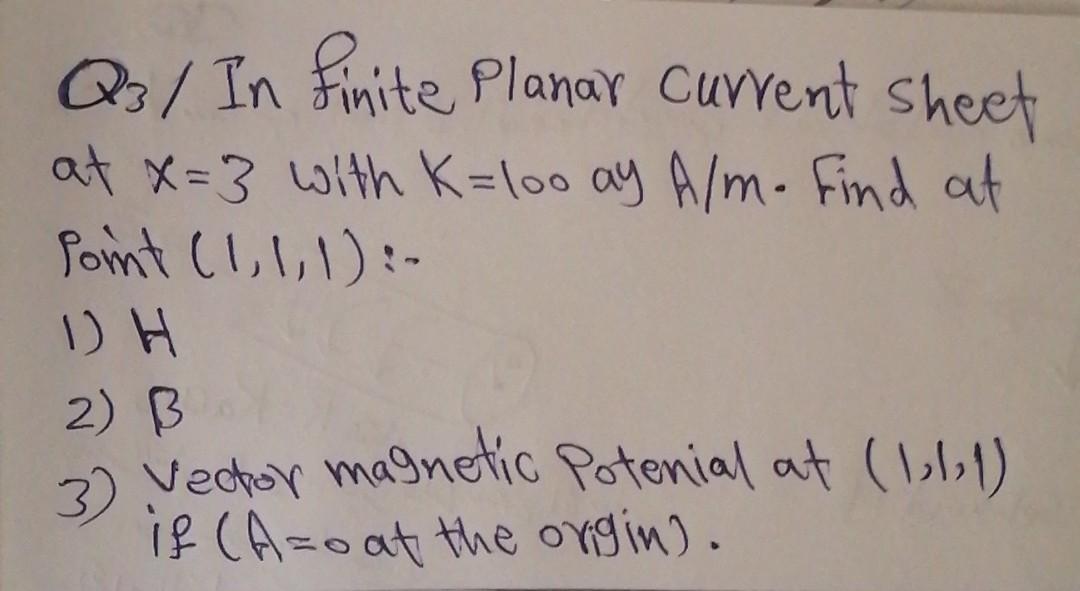 Q3/ In finite Planar Current sheet
at x=3 with K=100 ay A/m. Find at
Point (1,1,1):-
1) H
2) B
3) Vector magnetic Potenial at (1,1,1)
if (A=0 at the origin).